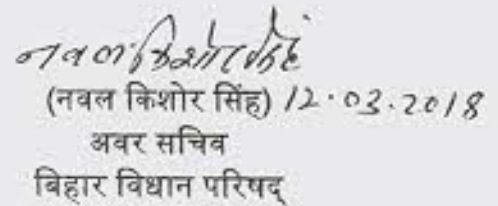 नवल किशोर सिंह
(नवल किशोर सिंह) 12.03.2018
अवर सचिव
बिहार विधान परिषद्